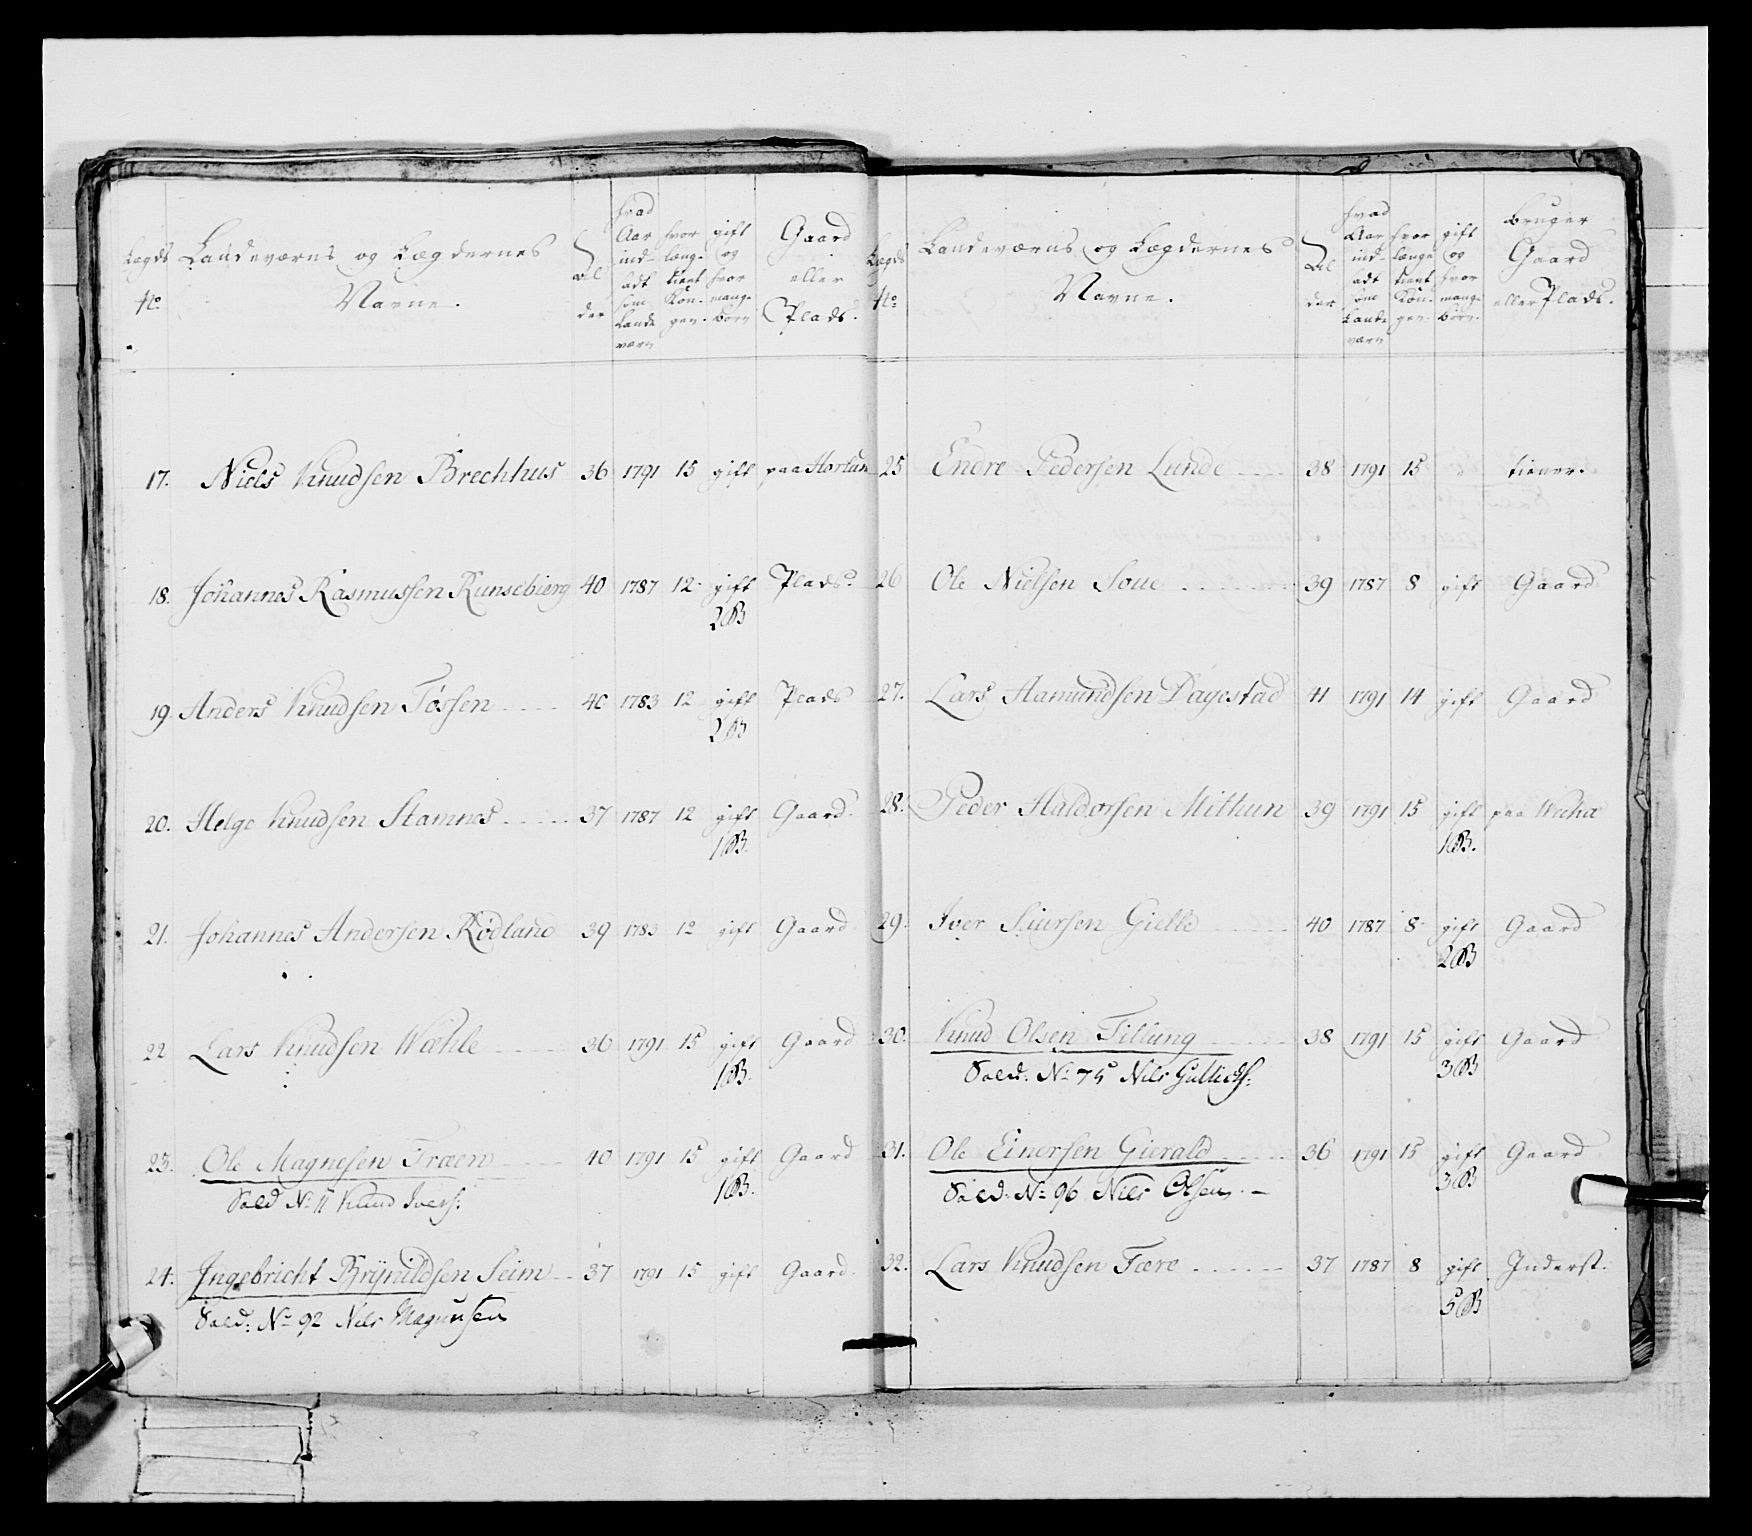 Legds No
Landeværns og Lægdernes Navne.
Alder
hvad Aar indsadt som Landeværn
hvor længe tient Kongen.
gift og hvor mange børn
Gaard eller Plads.
17. Niels Knudsen Brechhus 36 1791 15 gift paa Hortun
18. Johannes Rasmussen Kunsebierg 40 1787 12 gift Plads.
2 B
19. Anders Knudsen Tøssen 40 1783 12 gift Plads
2 B
20. Helge Knudsen Stamnes 37 1787 12 gift Gaard.
1 B.
21. Johannes Andersen Rødland 39 1783 12 gift Gaard
22 Lars Knudsen Wæhle 36 1791 15 gift Gaard
1 B.
23. Ole Magnesen Træen 40 1791 15 gift Gaard
1 B.
Sold No 11 Knud Ivers:
24. Ingebricht Brÿnildsen Seim 37 1791 15 gift Gaard.
Sold: No 92 Nils Magnusen
Lægds No
Landeværns og Lægdernes Navne.
Alder
hvad Aar indsadt som Landeværn
hvor længe tient Kongen.
gift og hvor mange børn.
bruger Gaard eller Plads.
25 Endre Pedersen Lunde 38 1791 15 " tiener.
26 Ole Nielsen Soue 39 1787 8 gift Gaard
27. Lars Aamundsen Dagestad 41 1791 14 gift Gaard
28. Peder Haldorsen Mithun 39 1791 15 gift paa
1 B.
29. Iver Siursen Gielle 40 1787 8 gift Gaard
2 B
30. Knud Olsen Tillung 38 1791 15 gift Gaard
3 B
Sold: No 75 Nils Gullichs:
31. Ole Einersen Gierald 36 1791 15 gift Gaard
3 B
Sold: No 96 Nils Olsen.
32. Lars Knudsen Fære 37 1787 8 gift Inderst.
5 B